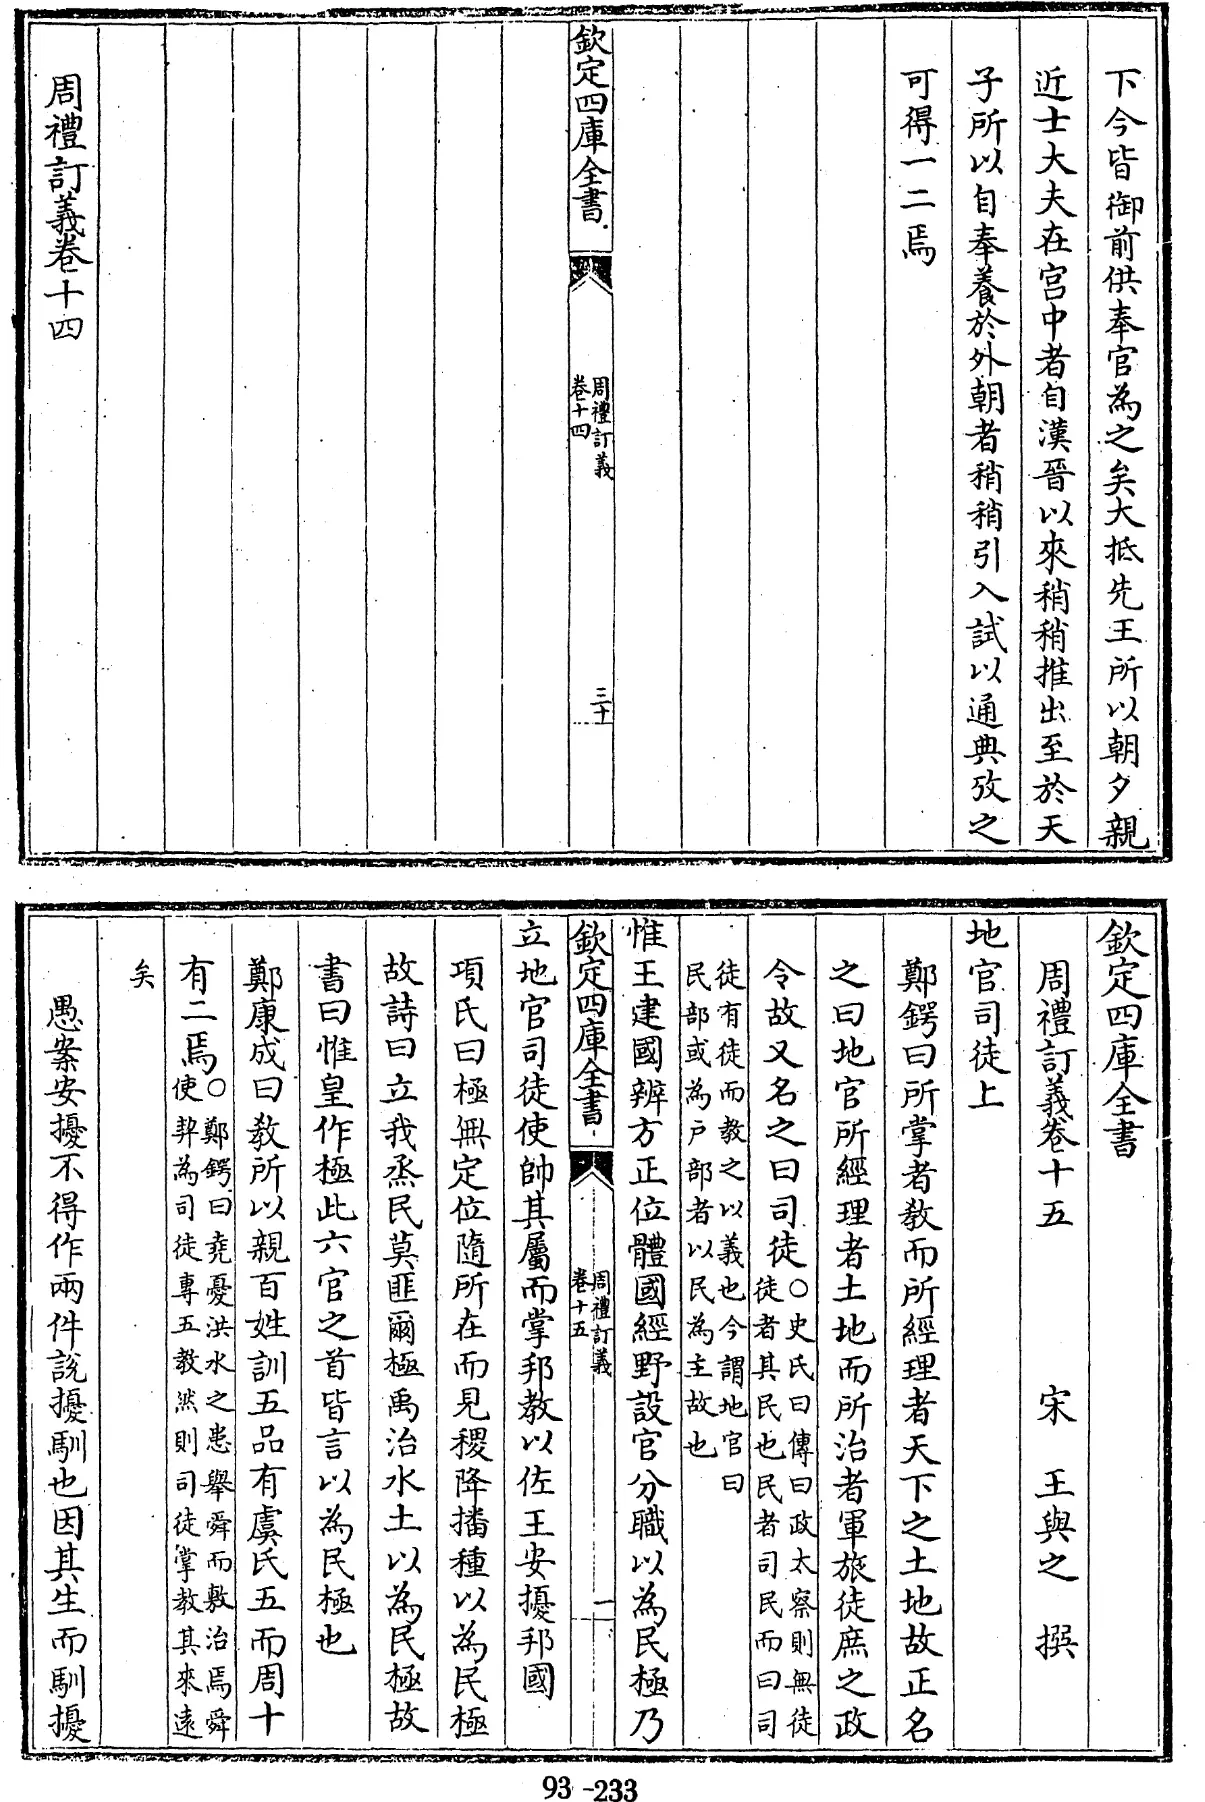 下今皆御前供奉官為之矣大抵先王所以朝夕親
近士大夫在宫中者自漢晉以來稍稍推出至於天
子所以自奉養於外朝者稍稍引入試以通典攷之
可得一二焉
欽定四庫全書
周禮訂義
卷十四
三十
周禮訂義卷十四
欽定四庫全書
周禮訂義卷十五
宋 王與之 撰
地官司徒上
鄭鍔曰所掌者教而所經理者天下之土地故正名
之曰地官所經理者土地而所治者軍旅徒庶之政
令故又名之曰司徒
○史氏曰傳曰政太察則無徒
徒者其民也民者司民而曰司
徒有徒而教之以義也今謂地官曰
民部或為户部者以民為主故也
惟王建國辨方正位體國經野設官分職以為民極乃
欽定四庫全書
周禮訂義
卷十五
一
立地官司徒使帥其屬而掌邦教以佐王安擾邦國
項氏曰極無定位隨所在而見稷降播種以為民極
故詩曰立我烝民莫匪爾極禹治水土以為民極故
書曰惟皇作極此六官之首皆言以為民極也
鄭康成曰教所以親百姓訓五品有虞氏五而周十
有二焉
○鄭鍔曰堯憂洪水之患舉舜而敷治焉舜
使契為司徒專五教然則司徒掌教其來遠
矣
愚案安擾不得作兩件說擾馴也因其生而馴擾
93-233